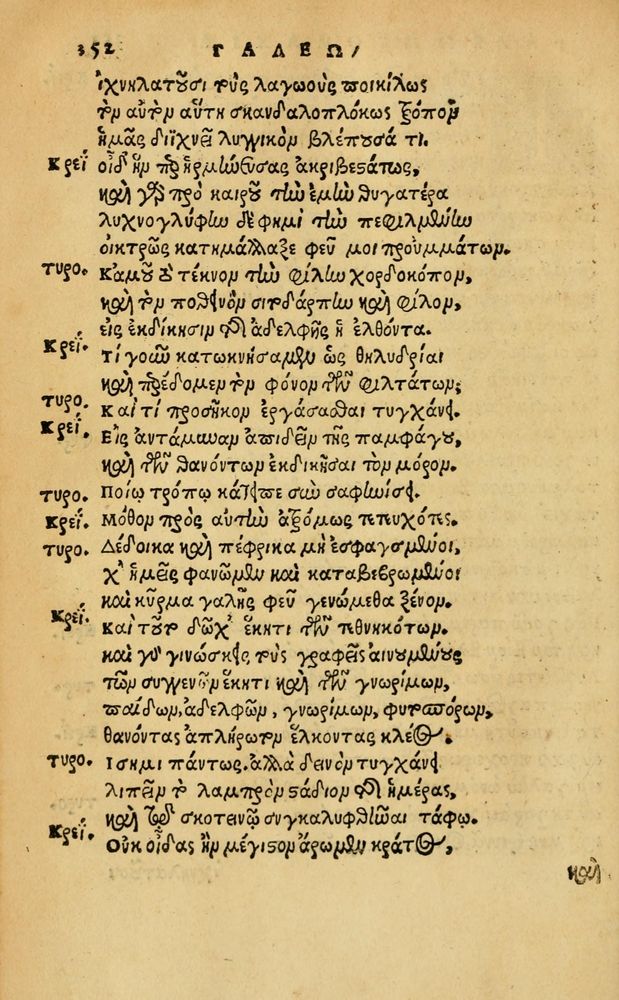 352 ΓΑΛΕΩ/
ἰχνηλατοῦσι τοὺς λαγωοὺς ποικίλως
τὸν αὐτὸν αὕτη σκανδαλοπλόκως τρόπον
ἡμᾶς διϊχνεῖ λυγγικὸν βλέπουσά τι.
Κρεῖ οἶδ' ἣν προηρμήνευσας ἀκριβεστάτως,
καὶ γὰρ πρὸ καιροῦ τὴν ἐμὴν θυγατέρα
λυχνογλύφην δέ φημι τὴν πεφιλμένην
οἰκτρῶς κατημάλαξε φεῦ μοι προὐμμάτων.
τυρο. Κἀμοῦ τέκνον τὴν φίλην χορδοκόπον,
καὶ τὸν ποθεινὸν σιτδάρπην καὶ φίλον,
εἰς ἐκδίκησιν τῆς ἀδελφῆς ἢ ἐλθόντα.
Κρεῖ. Τί γοῦν κατωκνήσαμεν ὡς θηλυδρίαι
καὶ προέδομεν τὸν φόνον τῶν φιλτάτων;
τυρο. Καὶ τί προσῆκον ἐργάσασθαι τυγχάνει.
Κρεῖ. Εἰς ἀντάμυναν ἀπιδεῖν τῆς παμφάγου,
καὶ τῶν θανόντων ἐκδικῆσαι τὸν μόρον.
τυρο. Ποίῳ τρόπῳ κάτειπε σὺν σαφηνίσει.
Κρεῖ. Μόθον πρὸς αὐτὴν ἀξόμως πεπυχότες.
τυρο. Δέδοικα καὶ πέφρικα μὴ ἐσφαγσμένοι,
χ' ἡμεῖς φανῶμεν καὶ καταβεβρωμένοι
καὶ κῦρμα γαλῆς φεῦ γενώμεθα ξένον.
Κρεῖ. Καὶ τοῦτ δῶχ' ἕκητι τῶν τεθνηκότων.
καὶ γὰρ γινώσκεις τοὺς γραφεῖς αἰνουμένους
τῶν συγγενῶν ἕκητι καὶ τῶν γνωρίμων,
παίδων, ἀδελφῶν, γνωρίμων, φυτοσπόρων,
θανόντας ἄπληρωτον ἕλκοντας κλέος.
τυρο. Ισημι πάντως. ἀλλὰ δεινὸν τυγχάνει
λιπεῖν τὸ λαμπρὸν στάδιον τῆς ἡμέρας,
καὶ τῷ σκοτεινῷ συγκαλυφθῆναι τάφῳ.
Κρεῖ. Οὐκ οἶδας ἣν μέγιστον ἄρωμεν κράτος,
καὶ